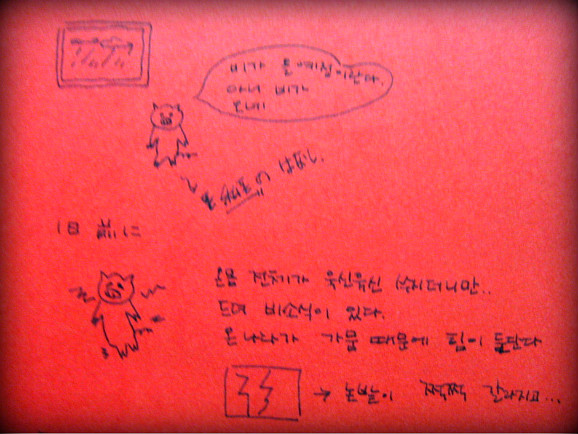 비가 올 예정이란다.
아니 비가
오네!
1日 前に
온몸 전체가 욱신욱신 쑤시더니만..
드뎌 비소식이 있다.
온나라가 가뭄 때문에 힘이 들단다
→ 논밭이 쩍쩍 갈라지고...